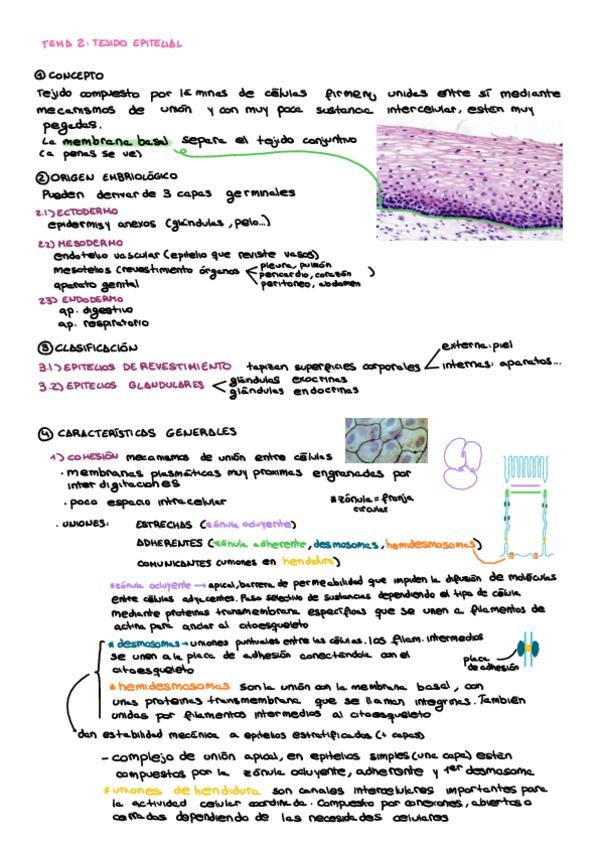 TEMA 2: TEJIDO EPITELIAL
① CONCEPTO
Tejido compuesto por láminas de células firmem, unidas entre sí mediante
mecanismos de unión y con muy poca sustancia intercelular, están muy
pegadas.
La membrana basal separa el tejido conjuntivo
(a penas se ve)
② ORIGEN EMBRIOLÓGICO
Pueden derivar de 3 capas germinales
2.1) ECTODERMO
epidermis y anexos (glándulas, pelo...)
2.2) MESODERMO
endotelio vascular (epitelio que reviste vasos)
mesotelios (revestimiento órganos < pleura, pulmón
pericardio, corazón )
peritoneo, abdomen
aparato genital
2.3) ENDODERMO
ap. digestivo
ap. respiratorio
③ CLASIFICACIÓN
3.1) EPITELIOS DE REVESTIMIENTO tapizan superficies corporales < externa: piel
interna: aparatos...
3.2) EPITELIOS GLANDULARES < glándulas exocrinas
glándulas endocrinas
④ CARACTERÍSTICAS GENERALES
1) COHESIÓN mecanismos de unión entre células
· membranas plasmáticas muy proximas engranadas por
interdigitaciones
· poco espacio intracelular
* zónula = franja
circular
· UNIONES: ESTRECHAS (zónula ocluyente)
ADHERENTES (zónula adherente, desmosomas, hemidesmosomas)
COMUNICANTES (uniones en hendidura)
* zónula ocluyente → apical, barrera de permeabilidad que impiden la difusión de moléculas
entre células adyacentes. Paso selectivo de sustancias dependiendo el tipo de célula
mediante proteínas transmembrana específicas que se unen a filamentos de
actina para anclar al citoesqueleto
* desmosomas → uniones puntuales entre las células. Los filam. intermedios
se unen a la placa de adhesión conectándola con el
citoesqueleto
placa
de adhesión
* hemidesmosomas son la unión con la membrana basal, con
unas proteínas transmembrana que se llaman integrinas. También
unidas por filamentos intermedios al citoesqueleto
dan estabilidad mecánica a epitelios estratificados (+ capas)
- complejo de unión apical, en epitelios simples (una capa) están
compuestos por la zónula ocluyente, adherente y 1er desmosoma
* uniones de hendidura son canales intercelulares importantes para
la actividad celular coordinada. Compuesto por conexones, abiertos o
cerrados dependiendo de las necesidades celulares